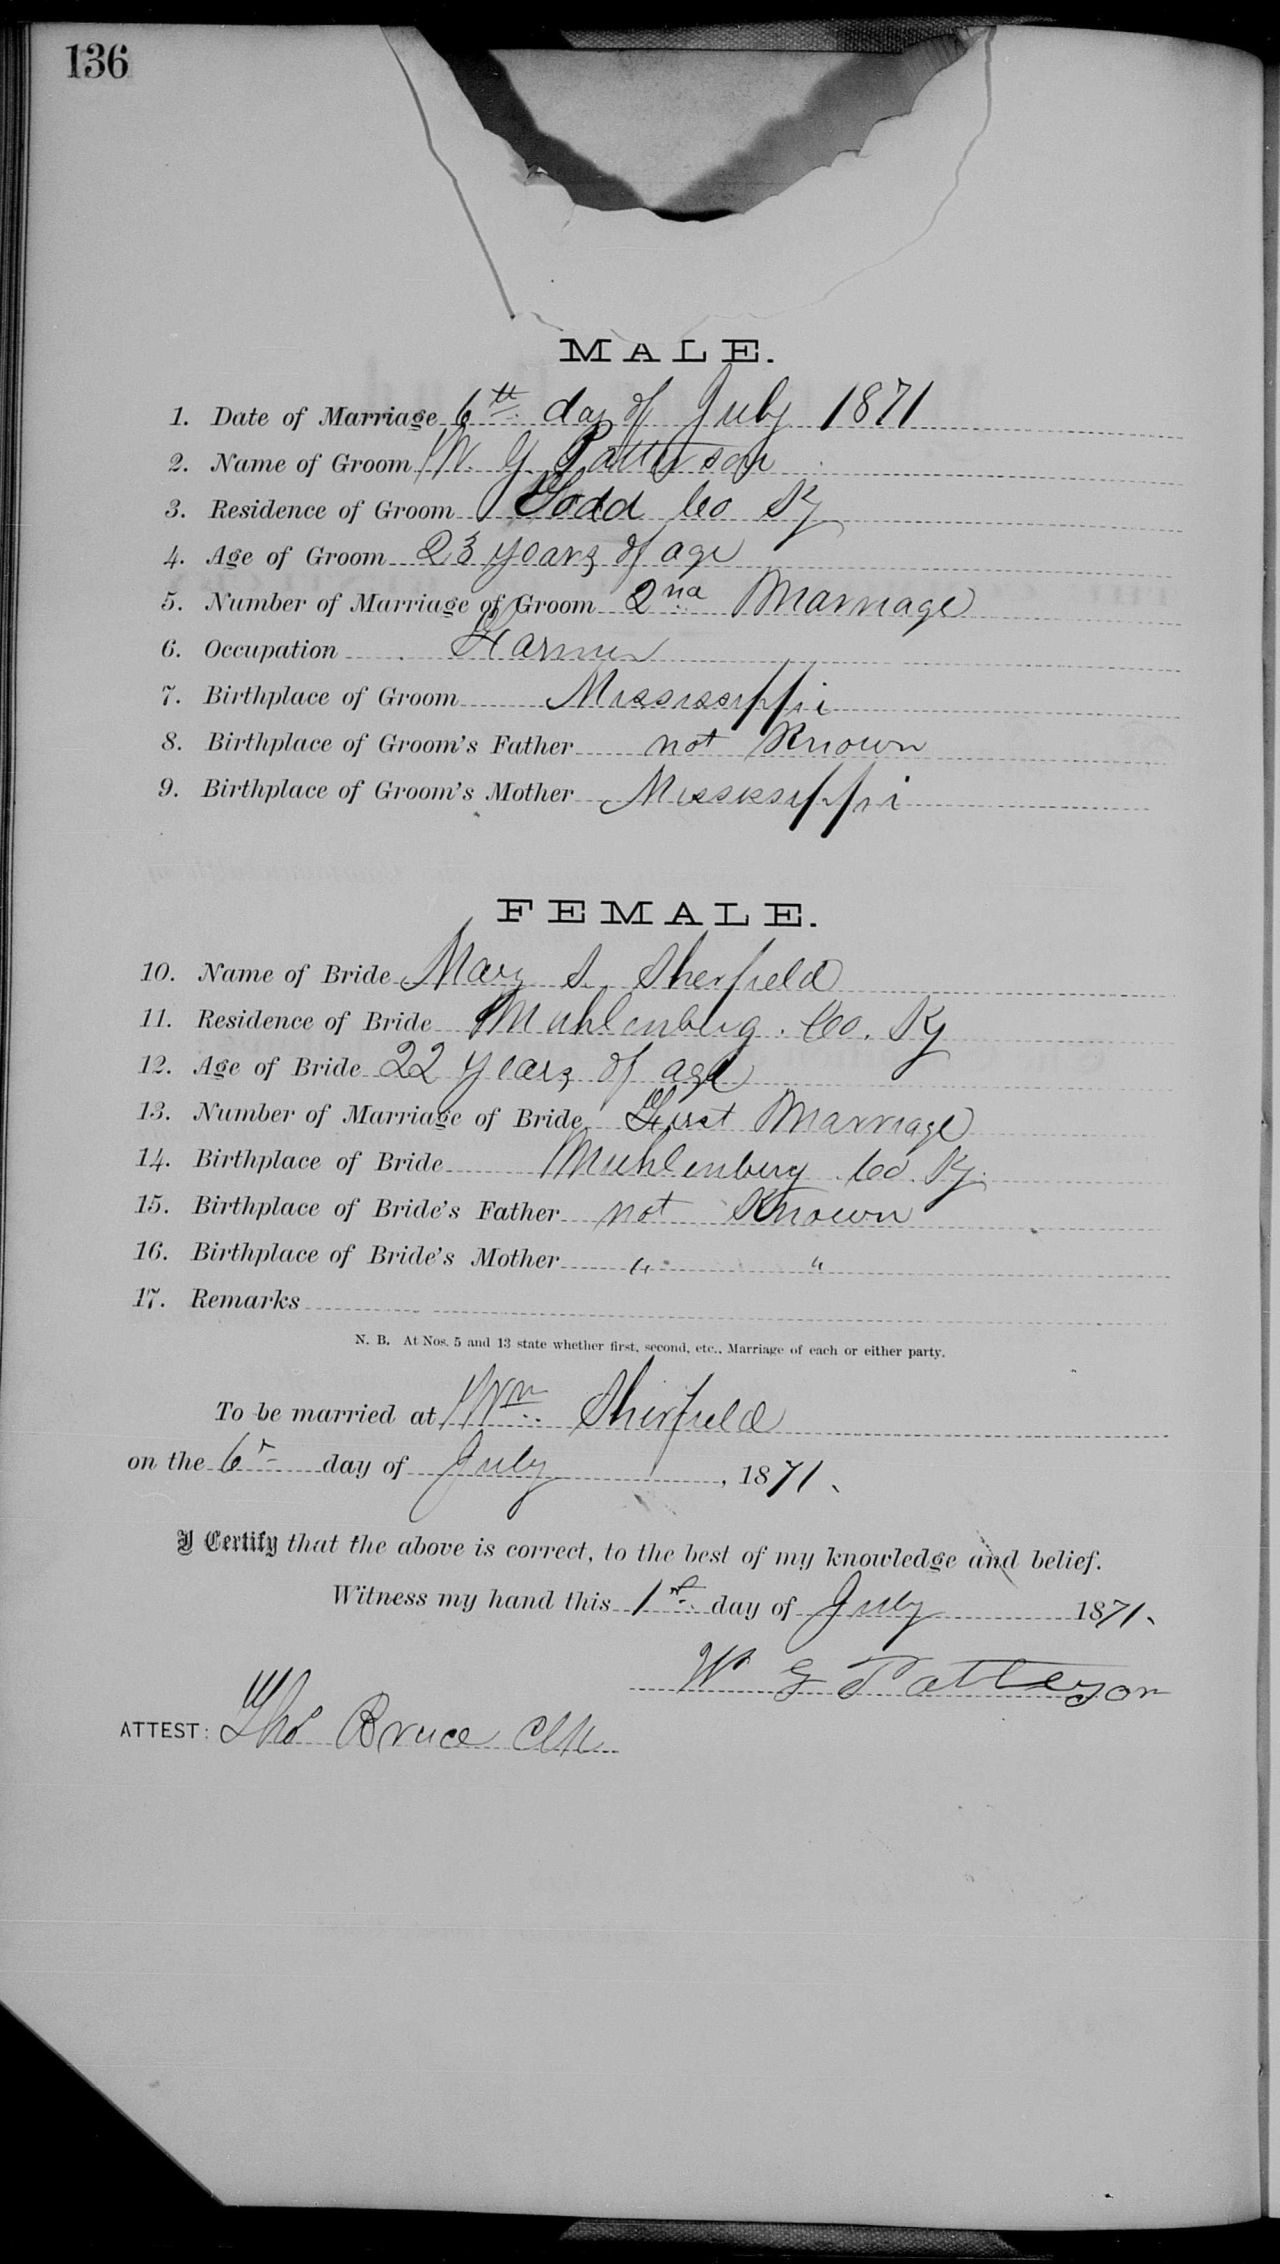 136
MALE.
1. Date of Marriage 6th day of July 1871
2. Name of Groom W. G. Patterson
3. Residence of Groom Todd Co Ky
4. Age of Groom 23 years of age
5. Number of Marriage of Groom 2nd Marriage
6. Occupation Farmer
7. Birthplace of Groom Mississippi
8. Birthplace of Groom's Father not Known
9. Birthplace of Groom's Mother Mississippi
FEMALE.
10. Name of Bride Mary S. Sherfield
11. Residence of Bride Muhlenberg. Co. Ky
12. Age of Bride 22 years of age
13. Number of Marriage of Bride First Marriage
14. Birthplace of Bride Muhlenberg Co. Ky.
15. Birthplace of Bride's Father not Known
16. Birthplace of Bride's Mother " "
17. Remarks
N. B. At Nos. 5 and 13 state whether first, second, etc., Marriage of each or either party.
To be married at Wm Sherfield
on the 6th day of July, 1871.
I Certify that the above is correct, to the best of my knowledge and belief.
Witness my hand this 1st day of July 1871.
W G Patterson
ATTEST: Tho Bruce Clk